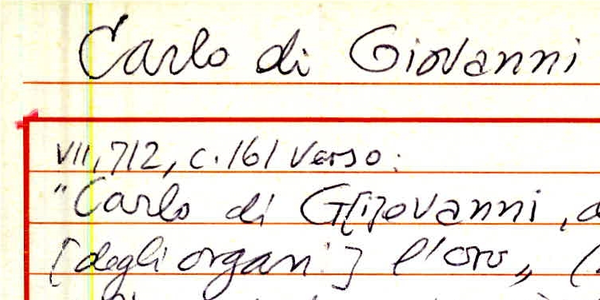 Carlo di Giovanni
VII, 712, c. 161 verso:
"Carlo di G[i]ovanni, d
[degli organi] l'oro,, (